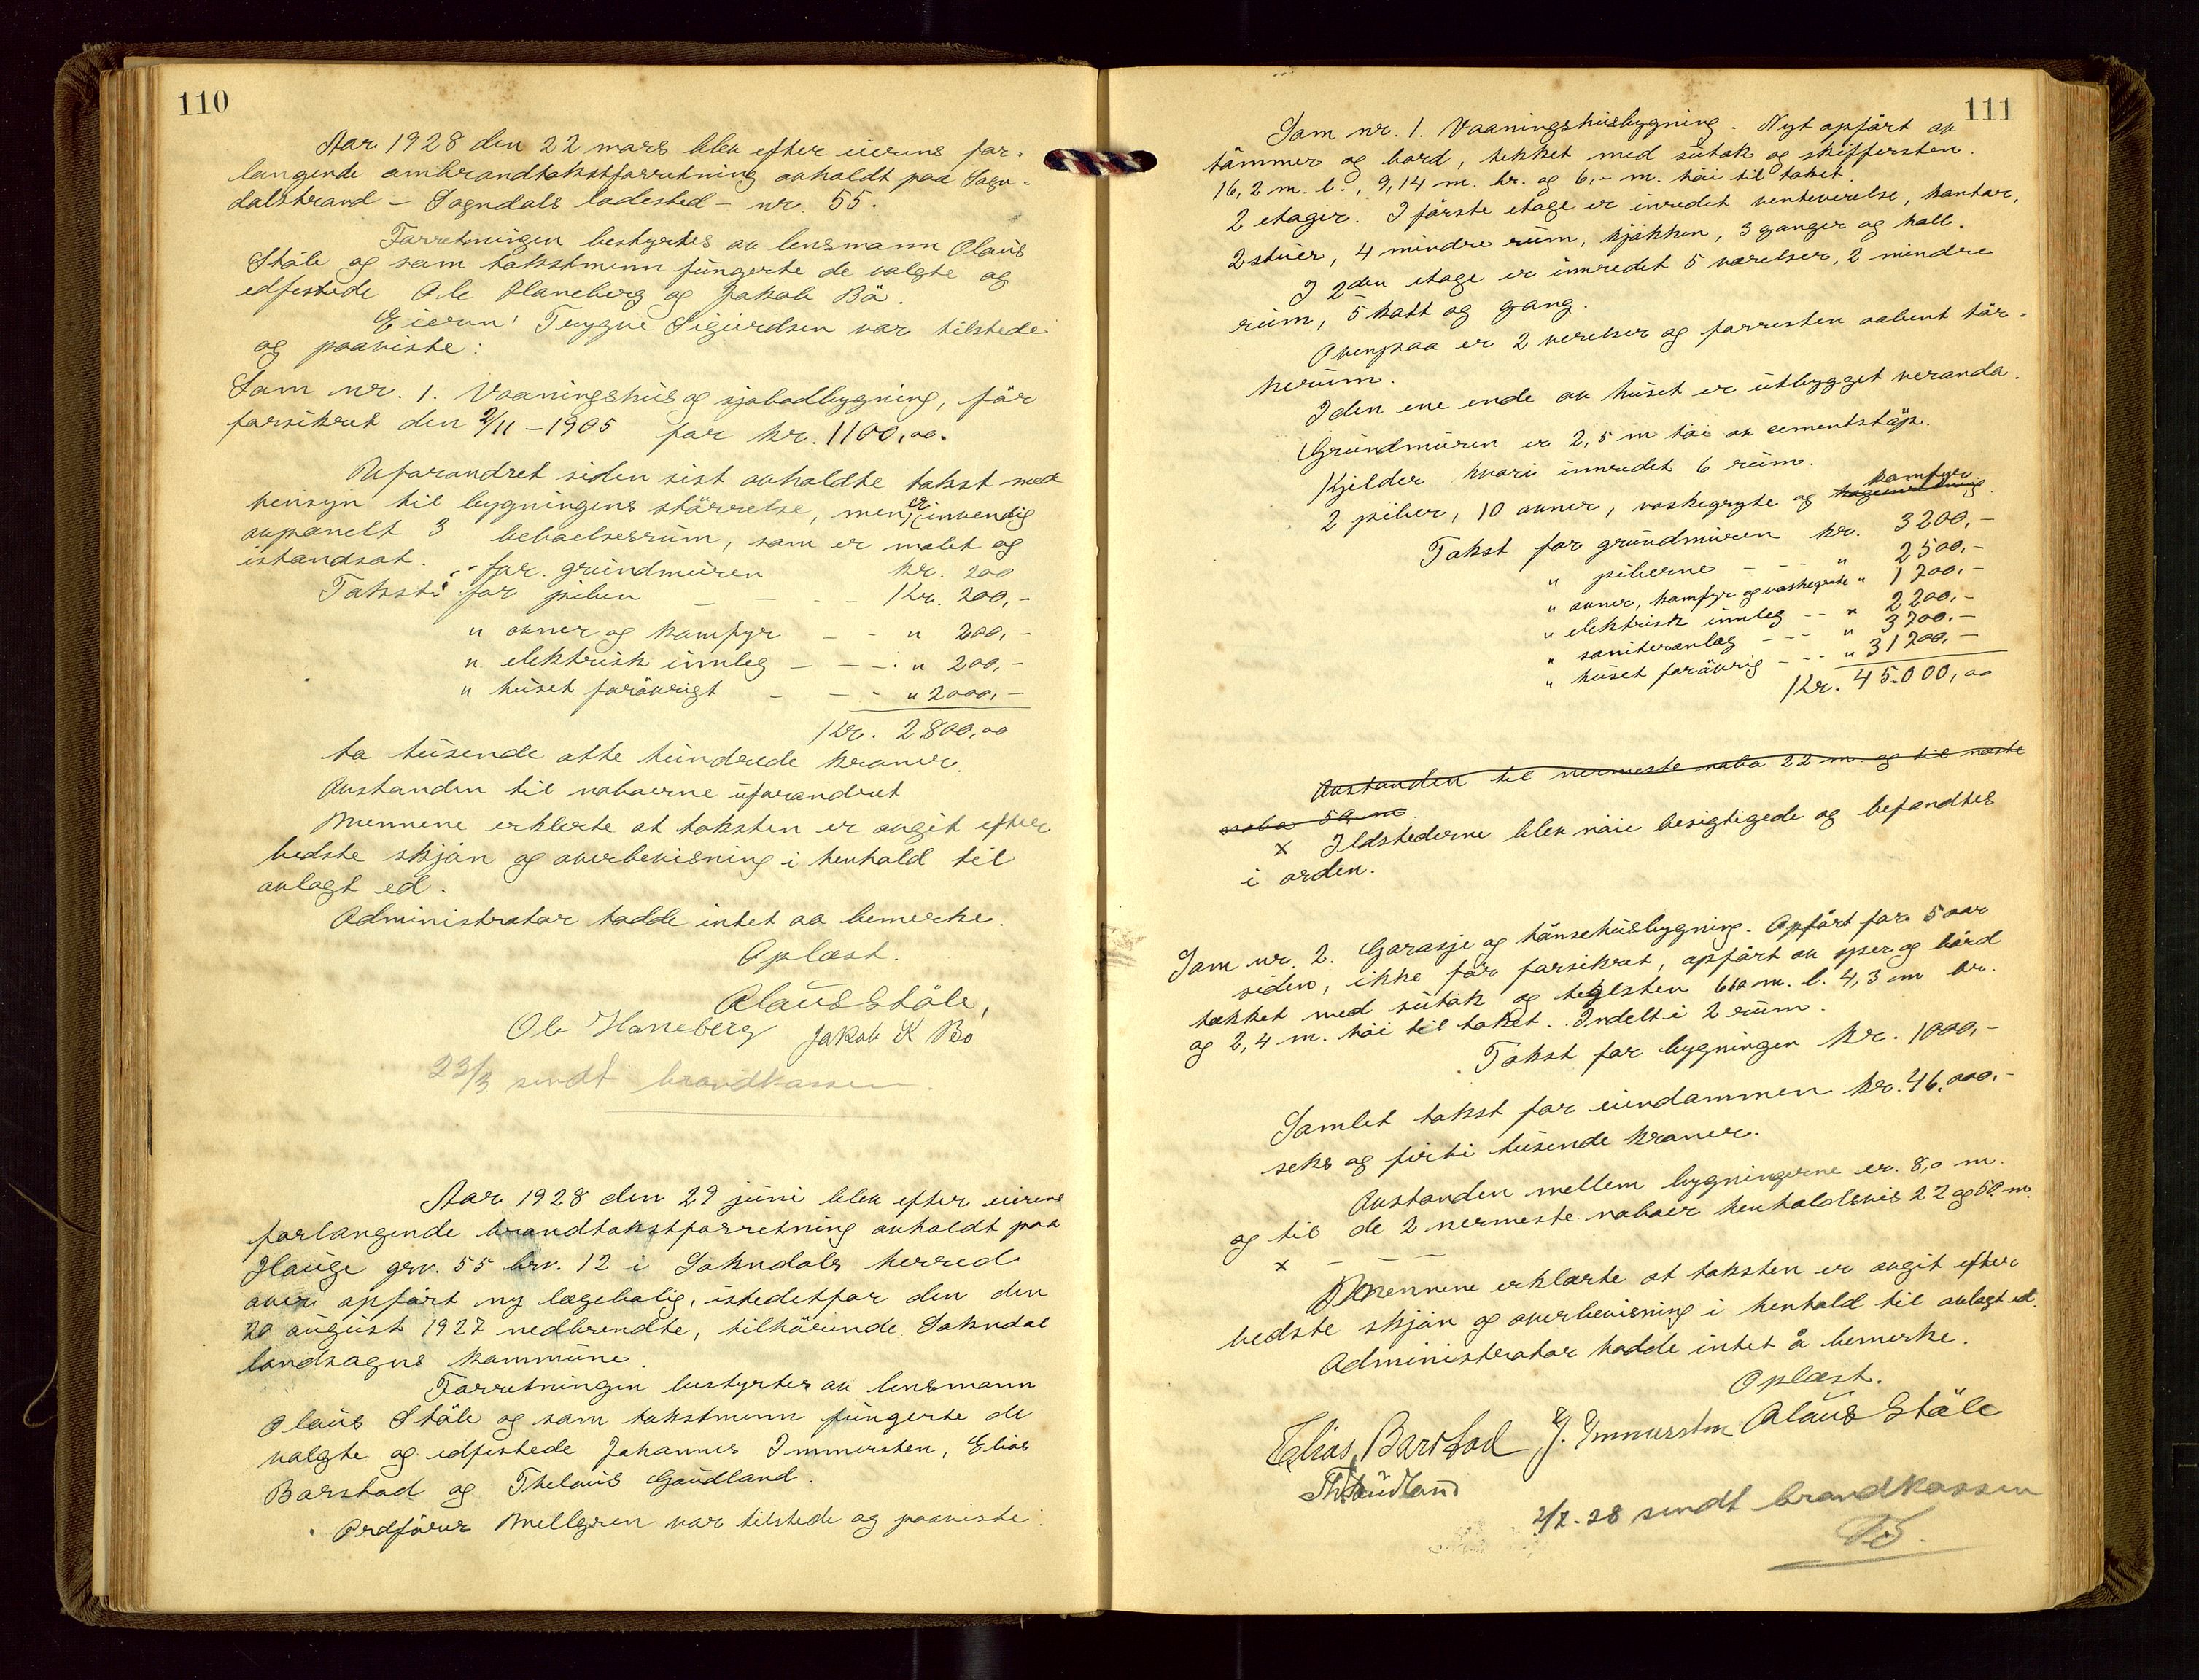 110
Aar 1928 den 22 mars blev efter eierens for-
langende ombrandtakstforretning avholdt paa Sogn-
dalstrand - Sogndals ladested - nr. 55.
Forretningen bestyrtes av lensmann Olaus
Ståle og som takstmenn fungerte de valgte og
edfestede Ole Haneberg og Jakob Bö.
Eieren Trygve Sigurdsen var tilstede
og paaviste:
Som nr. 1. Vaaningshus og sjøbodbygning, för
forsikret den 2/11 - 1905 for kr. 1100,00.
Uforandret siden sist avholdte takst med
hensyn til bygningens störrelse, men er invendig
avpanelt 3 beboelsesrum, som er malet og
istandsat.
Takst: for grundmuren kr. 200
for piben - - - Kr. 200,-
" ovner og komfyr - - " 200,-
" elektrisk innleg - - - " 200,-
" huset forövrigt - - - " 2000,-
Kr. 2800,00
to tusende otte hundrede kroner.
Avstanden til naboerne uforandret
Mennene erklerte at taksten er avgit efter
bedste skjön og overbevisning i henhold til
avlagt ed.
Administrator hadde intet aa bemerke.
Oplæst.
Olaus Ståle,
Ole Haneberg Jakob K Bö
23/3 sendt brandkassen.
Aar 1928 den 29 juni blev efter eierens
forlangende brandtakstforretning avholdt paa
Hauge grv. 55 brv. 12 i Sokndals herred
over opfört ny lægebolig, istedetfor den den
20 august 1927 nedbrendte, tilhörende Sokndal
landsogns kommune.
Forretningen bestyrtes av lensmann
Olaus Ståle og som takstmenn fungerte de
valgte og edfestede Johannes Immersten, Elias
Barstad og Thelaus Gaudland.
Ordförer Mellgren var tilstede og paaviste:
111
Som nr. 1. Vaaningshusbygning. Nyt opfört av
tömmer og bord, tekket med sutak og skiffersten.
16,2 m. l., 9,14 m. br. og 6,- m. höi til taket.
2 etager. I förste etage er inredet venteverelse, kontor,
2 stuer, 4 mindre rum, kjökken, 3 ganger og hall.
I 2den etage er innredet 5 værelser, 2 mindre
rum, 5 kott og gang.
Ovenpaa er 2 verelser og forresten aabent tör-
kerum.
I den ene ende av huset er utbygget veranda.
Grundmuren er 2,5 m höi av cementstöp.
Kjelder hvori innredet 6 rum.
2 piber, 10 ovner, vaskegryte og komfyr.
Takst for grundmuren kr. 3200,-
" piberne - - - " 2500,-
" ovner, komfyr og vaskegryte " 1700,-
" elektrisk innleg - - " 2200,-
" saniteranlæg - - - " 3700,-
" huset forövrig - - - " 31700,-
Kr. 45.000,00
Avstanden til nermeste nabo 22 m og til næste
nabo 50 m.
x Ildstederne blev nöie besigtigede og befandtes
i orden.
Som nr. 2. Garasje og hönsehusbygning. Opfört for 5 aar
siden, ikke för forsikret, opfört av sper og bord
tekket med sutak og teglsten 6,10 m. l. 4,3 m br.
og 2,4 m. höi til taket. Indelt i 2 rum.
Takst for bygningen kr. 1000,-
Samlet takst for eiendommen kr. 46.000,-
seks og firti tusende kroner.
Avstanden mellem bygningerne er 8,0 m.
og til de 2 nermeste naboer henholdsvis 22 og 50 m.
x
Mennene erklærte at taksten er avgit efter
bedste skjön og overbevisning i henhold til avlagt ed.
Administrator hadde intet å bemerke.
Oplæst.
Elias Barstad J. Immersten Olaus Ståle
Th Gaudland
2/7-28 sendt brandkassen